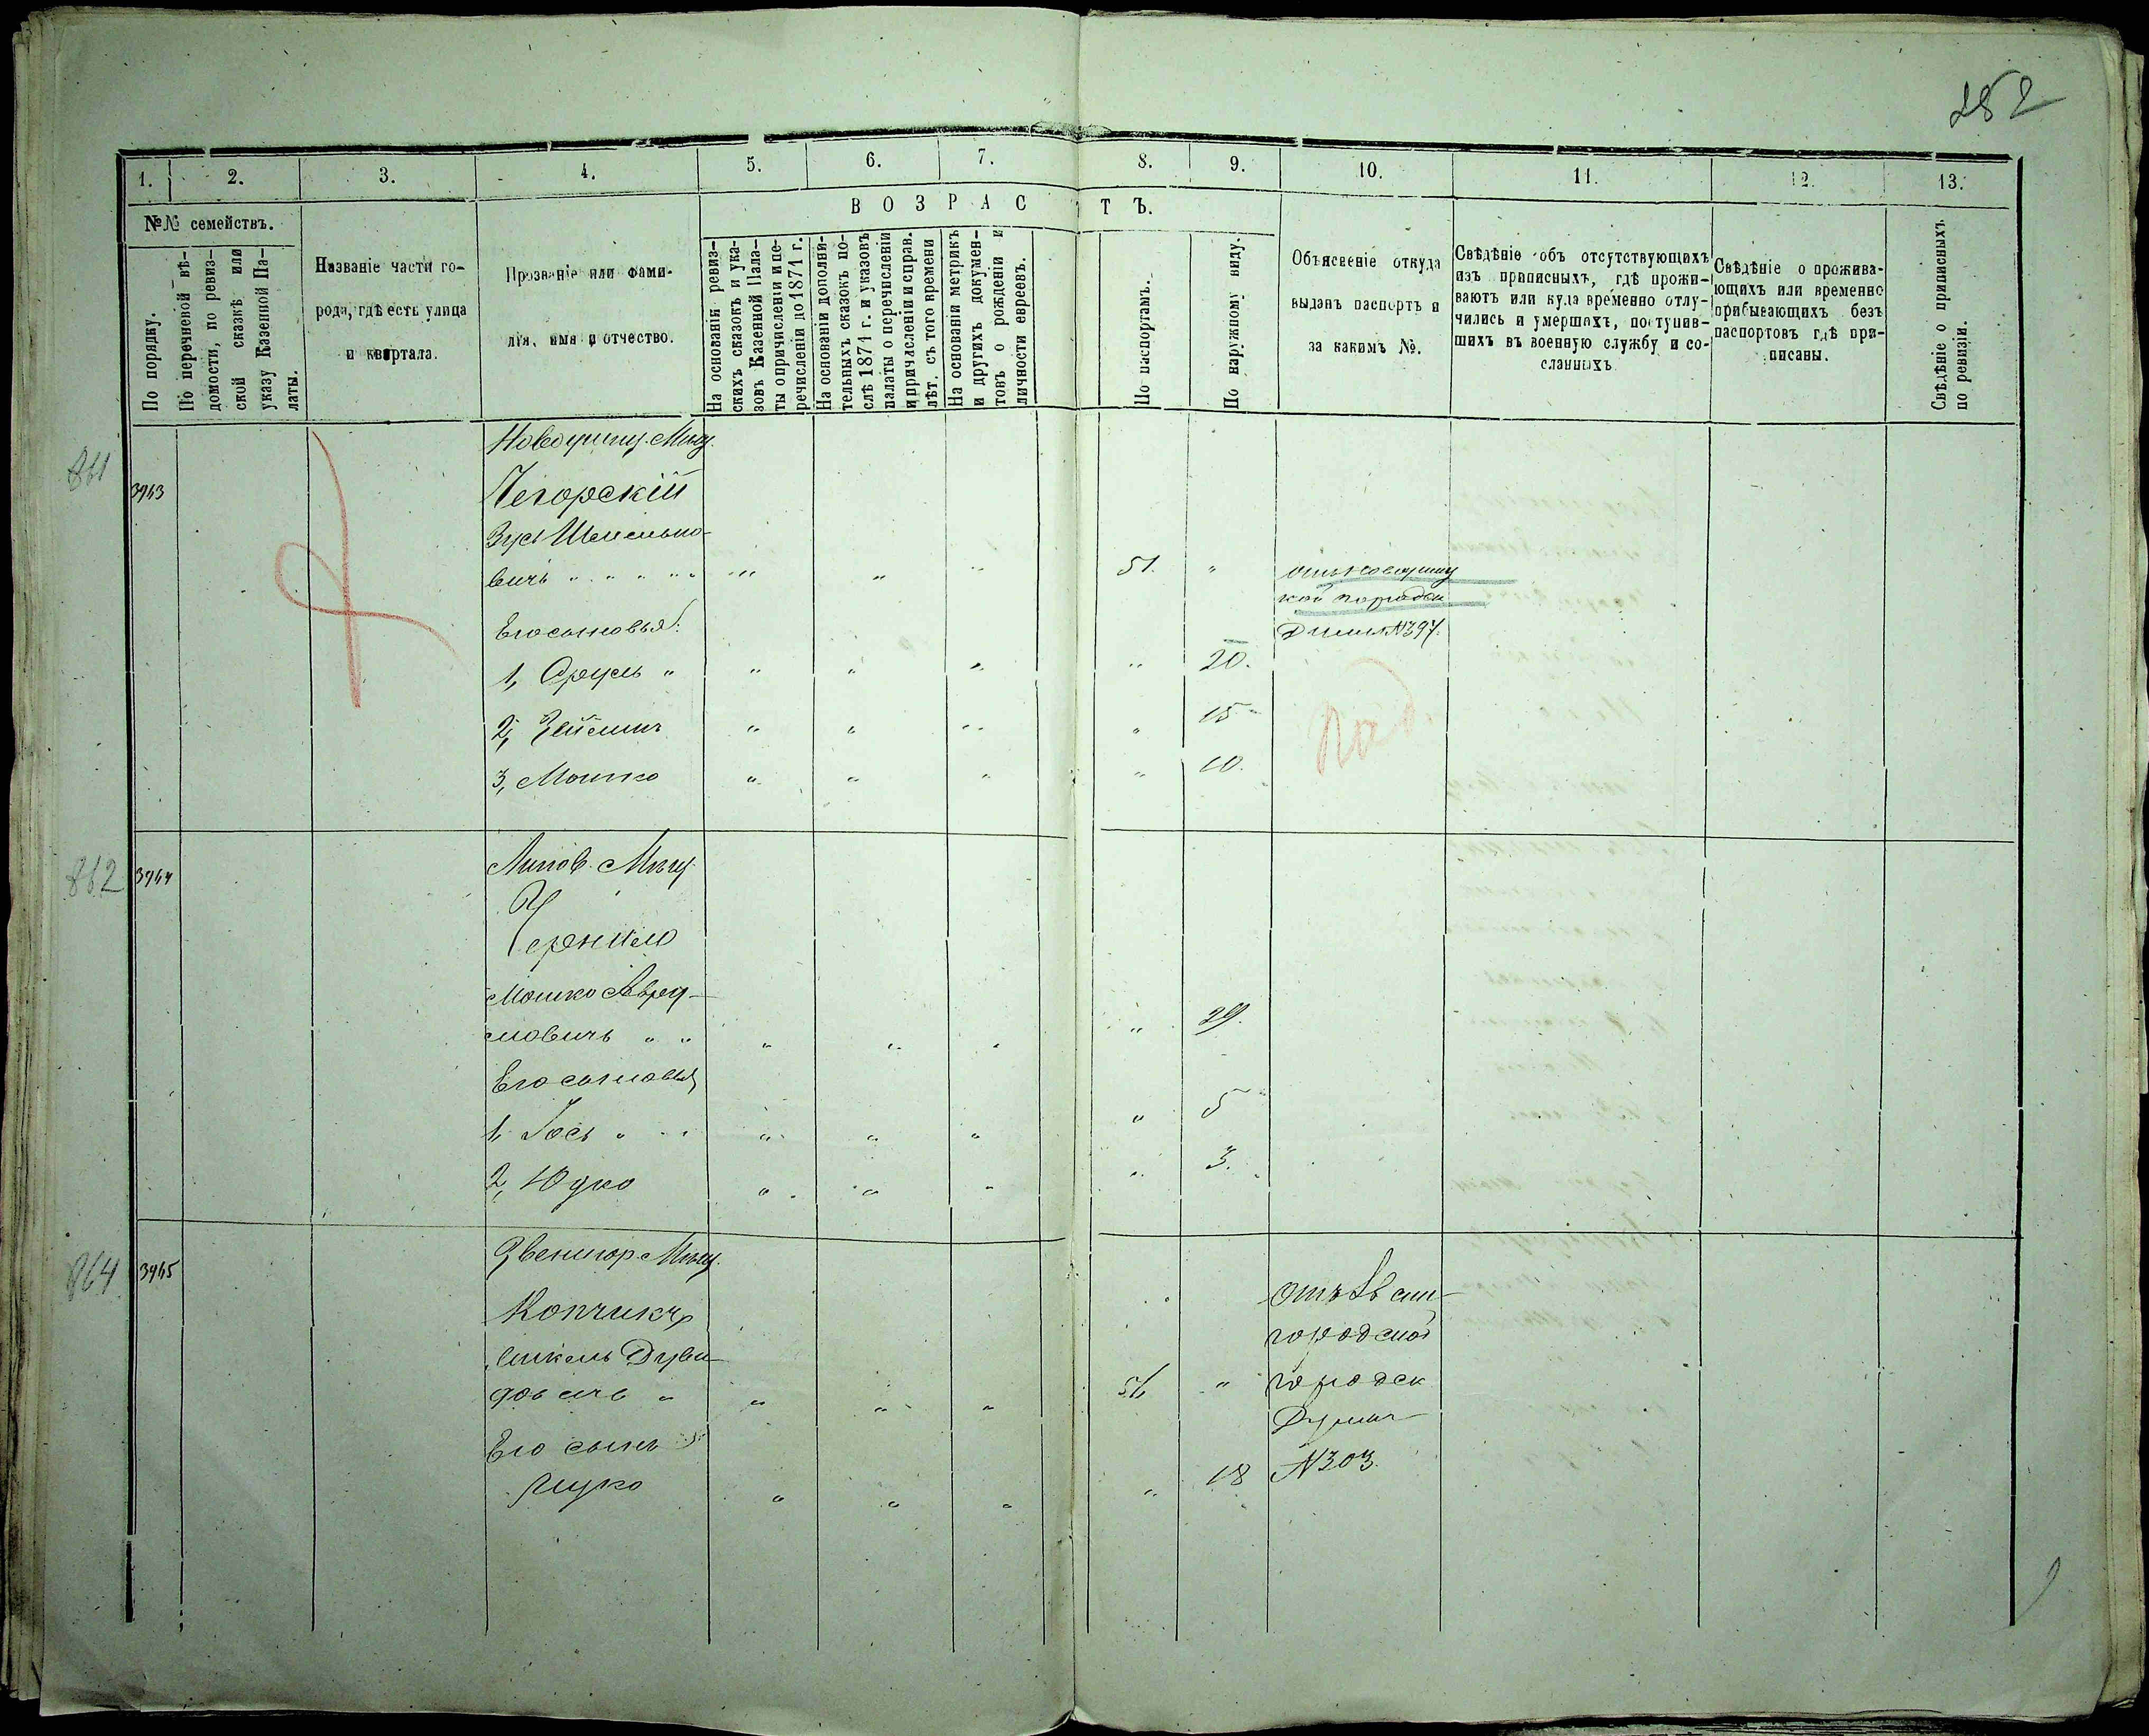 252
1. 2. 3. 4. 5. 6. 7. 8. 9. 10. 11. 12. 13.
№№ семействъ.
По порядку.
По перечневой вѣ-
домости, по ревиз-
ской сказкѣ или
указу Казенной Па-
латы.
Названіе части го-
рода, гдѣ есть улица
и квартала.
Прозваніе или фами-
лія, имя и отчество.
ВОЗРАСТЪ.
На основаніи ревиз-
скихъ сказокъ и ука-
зовъ Казенной Пала-
ты о причисленіи и пе-
речисленіи до 1871 г.
На основаніи дополни-
тельныхъ сказокъ по-
слѣ 1871 г. и указовъ
палаты о перечисленіи
и причисленіи и справ.
лѣт. съ того времени
На основаніи метрикъ
и другихъ докумен-
товъ о рожденіи и
личности евреевъ.
По паспортамъ.
По наружному виду.
Объясненіе откуда
выданъ паспортъ и
за какимъ №.
Свѣдѣніе объ отсутствующихъ
изъ приписныхъ, гдѣ прожи-
ваютъ или куда временно отлу-
чились и умершихъ, поступив-
шихъ въ военную службу и со-
сланныхъ
Свѣдѣніе о прожива-
ющихъ или временно
прибывающихъ безъ
паспортовъ гдѣ при-
писаны.
Свѣдѣніе о приписныхъ
по ревизіи.
861
3943
Новоушиц. Мѣщ.
Печорскій
Зусь
вичъ " " " " " " " 51. "
Его сыновья:
Думы №397.
1, Сруль " " " " " 20.
2, " " " " 15
3, Мошко " " " " 10.
862
3944
Липов. Мѣщ.
Чернило
Мошко Авру-
мовичъ " " " " " " 29.
Его сыновья
1, Іось " " " " " 5
2, Юдко " " " " 3.
864
3945
Звенигор. Мѣщ.
Копчикъ
Дуви-
довичъ " " " " 51 "
городской
городск
Думы
№303.
Его сынъ
Ицко " " " " 18